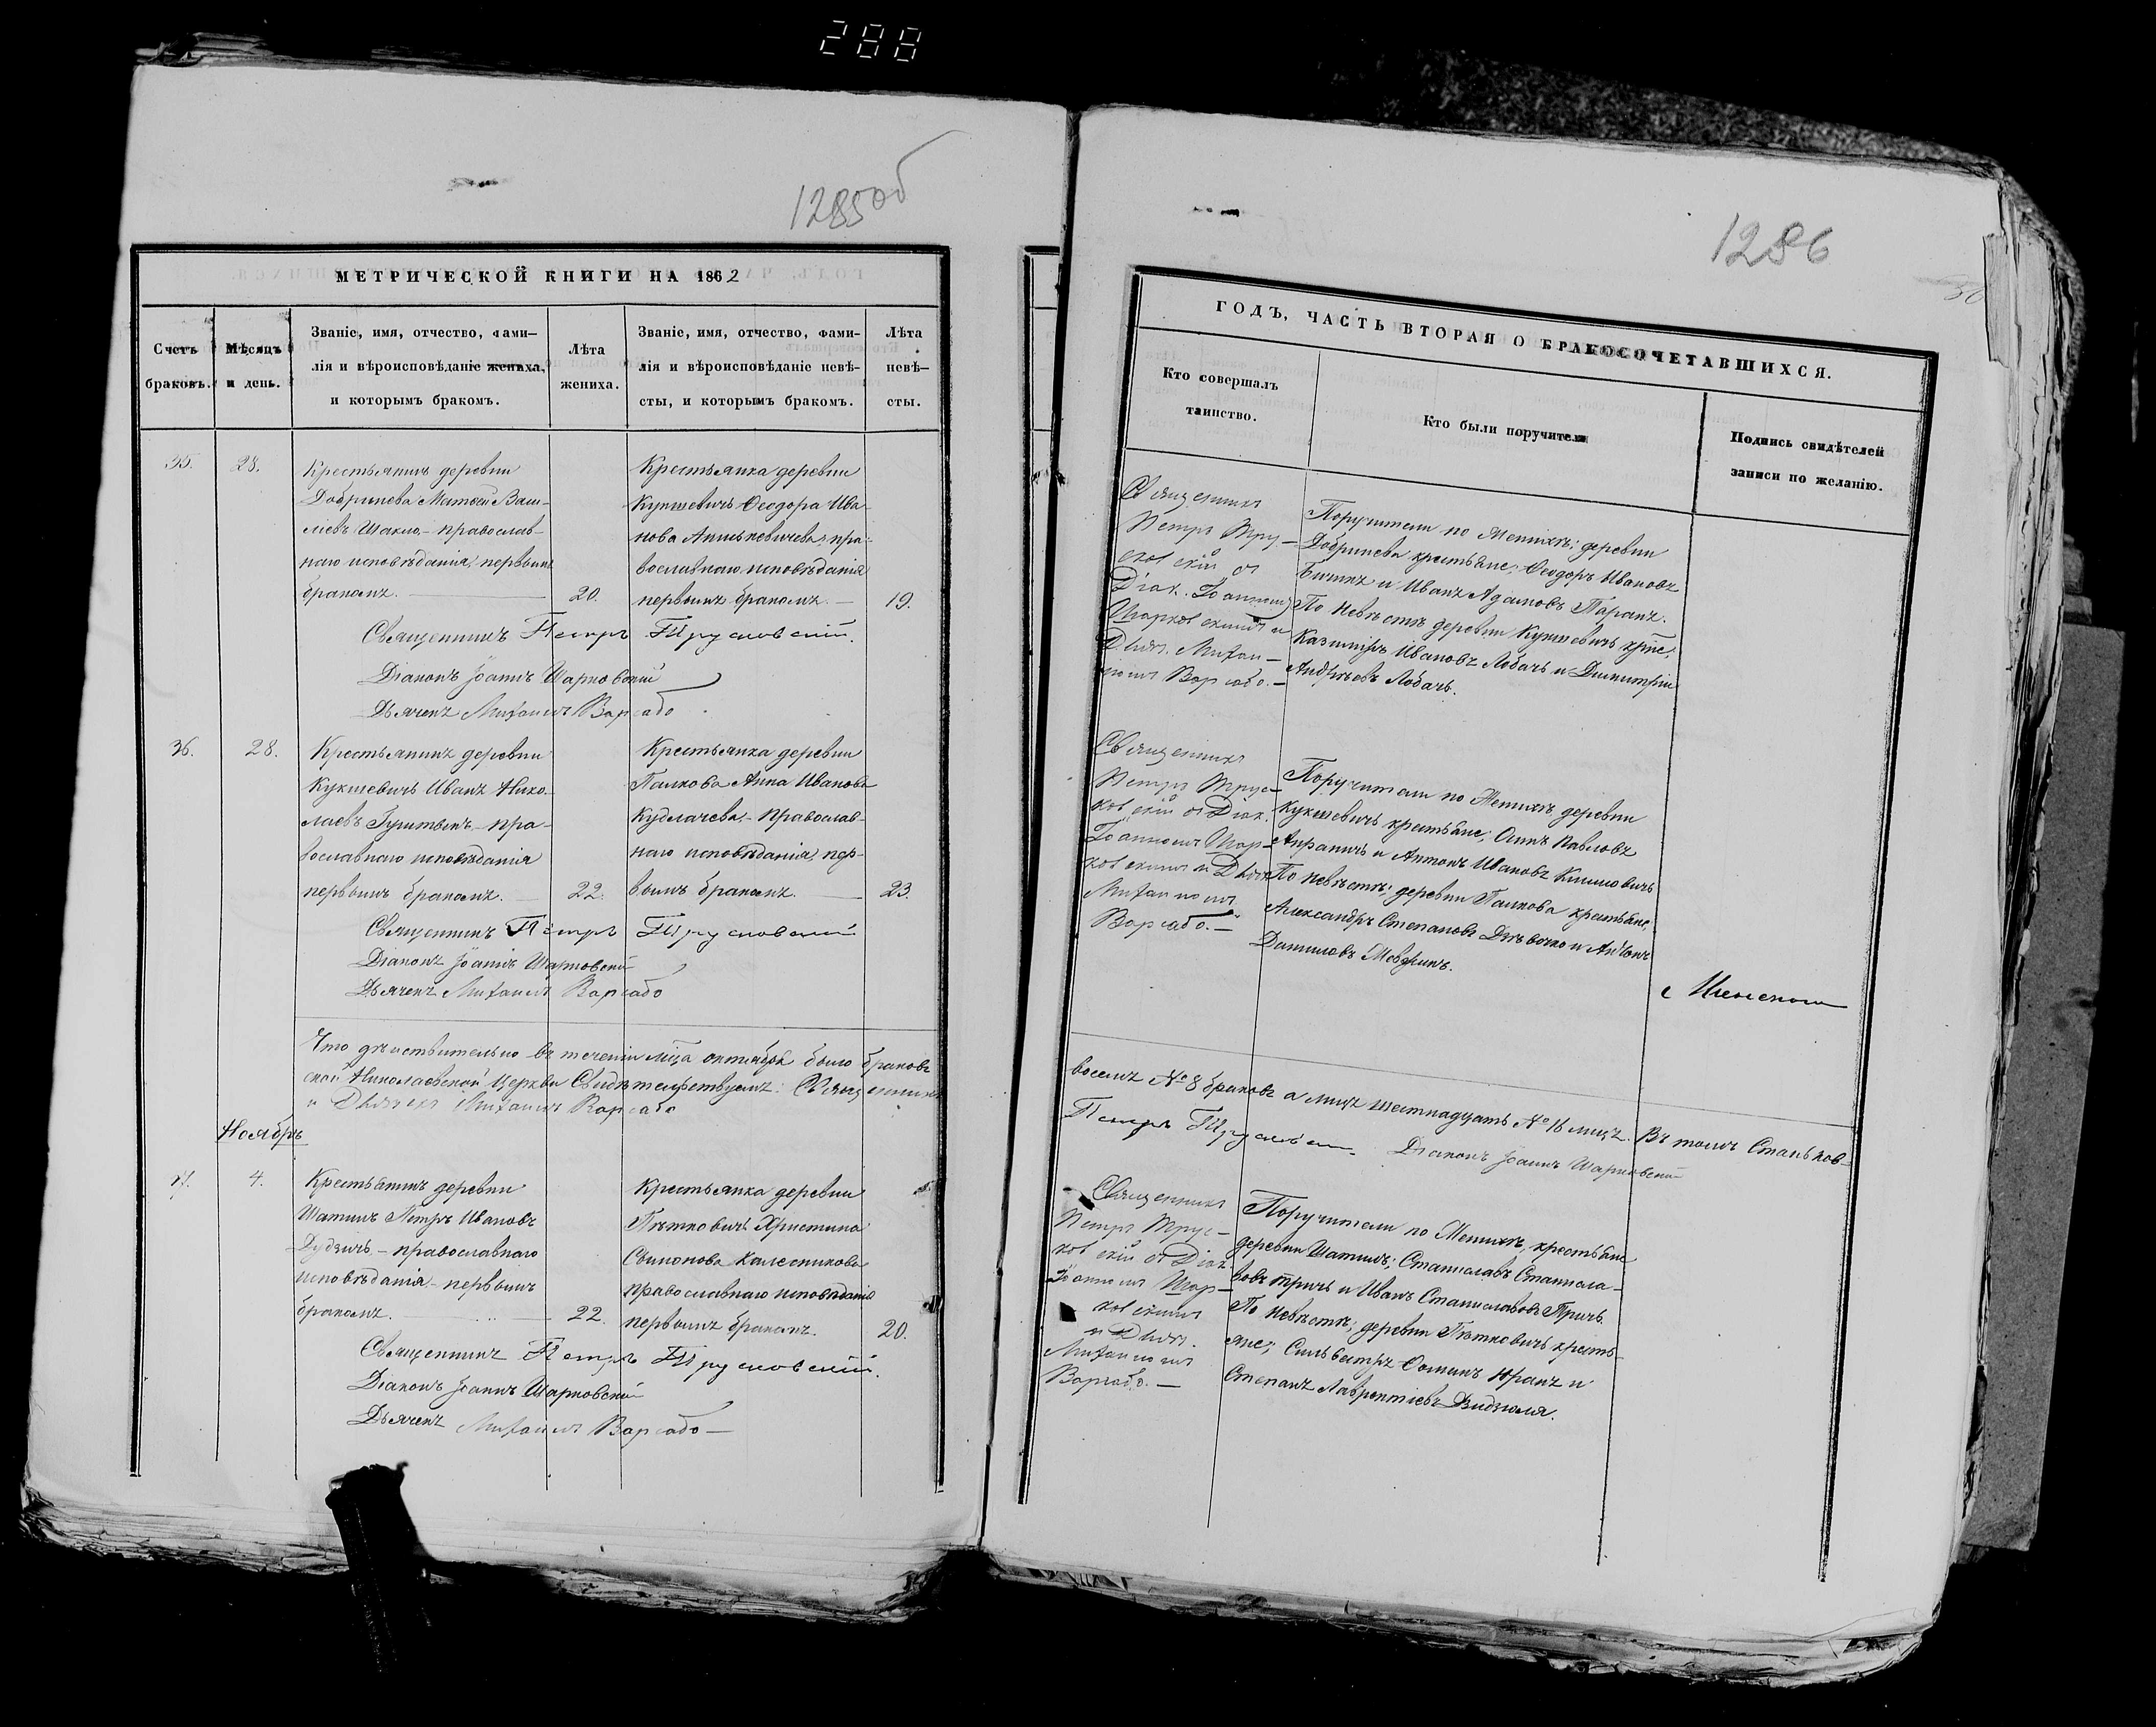 288
1285об
МЕТРИЧЕСКОЙ КНИГИ НА 1862
Счетъ браковъ.
Мѣсяцъ и день.
Званіе, имя, отчество, фами-
лія и вѣроисповѣданіе жениха,
и которымъ бракомъ.
Лѣта
жениха.
Званіе, имя, отчество, фами-
лія и вѣроисповѣданіе невѣ-
сты, и которымъ бракомъ.
Лѣта
невѣ-
сты.
35.
28.
Крестьянинъ деревни
Добринева Матѳей Васи-
ліевъ Шакло,- православ-
наго исповѣданія, первымъ
бракомъ.
20.
Крестьянка деревни
Кукшевичъ Ѳеодора Ива-
нова, пра-
вославнаго исповѣданія
первымъ бракомъ.
19.
Священникъ Петръ Трусковскій.
Діаконъ Іоаннъ Шарковскій
Дьячекъ Михаилъ Варсабо.
36.
28.
Крестьянинъ деревни
Кукшевичъ Иванъ Нико-
лаевъ - пра-
вославнаго исповѣданія
первымъ бракомъ.
22.
Крестьянка деревни
Панкова Анна Иванова
Кудлачева,- православ-
наго исповѣданія пер-
вымъ бракомъ.
23.
Священникъ Петръ Трусковскій
Діаконъ Іоаннъ Шарковскій
Дьячекъ Михаилъ Варсабо
Что дѣйствительно въ теченіи мѣца октября было браковъ
ской Николаевской Церкви Свидѣтельствуемъ: Священникъ
и Дьячекъ Михаилъ Варсабо
Ноябрь
4.
Крестьянинъ деревни
Шатилъ Петръ Ивановъ
Дудзичъ - православнаго
исповѣданія - первымъ
бракомъ.
22.
Крестьянка деревни
Пѣтковичъ Христина
Симонова Калесникова
православнаго исповѣданія
первымъ бракомъ.
20.
Священникъ Петръ Трусковскій.
Діаконъ Іоаннъ Шарковскій
Дьячекъ Михаилъ Варсабо
1286
ГОДЪ, ЧАСТЬ ВТОРАЯ О БРАКОСОЧЕТАВШИХСЯ.
Кто совершалъ
таинство.
Кто были поручители
Подпись свидѣтелей
записи по желанію.
Священникъ
Петръ Тру-
сковскій съ
Діак. Іоанномъ
Шарковскимъ и
Дьяч. Михаи-
ломъ Варсабо.-
Поручители по Женихѣ; деревни
Добринева крестьяне; Ѳеодоръ Ивановъ
и Иванъ Адамовъ Таранъ.
По Невѣстѣ деревни Кукшевичъ крт̃не,
Казимиръ Ивановъ Лобачъ и Димитрій
Андреевъ Лобачъ.
Священникъ
Петръ Трус-
ковскій съ Діак.
Іоанномъ Шар-
ковскимъ и Дьяч.
Михаиломъ
Варсабо.-
Поручители по Женихѣ, деревни
Кукшевичъ крестьяне; Осипъ Павловъ
и Антонъ Ивановъ Климовичъ
По невѣстѣ; деревни Панкова крестьяне,
Александръ Степановъ Дзѣвочко и Антонъ
Даниловъ
восемь № 8 браковъ а лицъ шестнадцать № 16 лицъ. Въ томъ Станьков-
Петръ Трусковскій. Діаконъ Іоаннъ Шарковскій
Священникъ
Петръ Трус-
ковскій съ Діак.
Іоанномъ Шар-
ковскимъ
и Дьяч.
Михаиломъ
Варсабо.-
Поручители по Женихѣ, крестьяне
деревни Шатилъ; Станиславъ Станисла-
вовъ Тричъ и Иванъ Станиславовъ Тричъ.
По Невѣстѣ; деревни Пѣтковичъ кресть-
яне; Сильвестръ Ѳоминъ и
Степанъ Лаврентіевъ